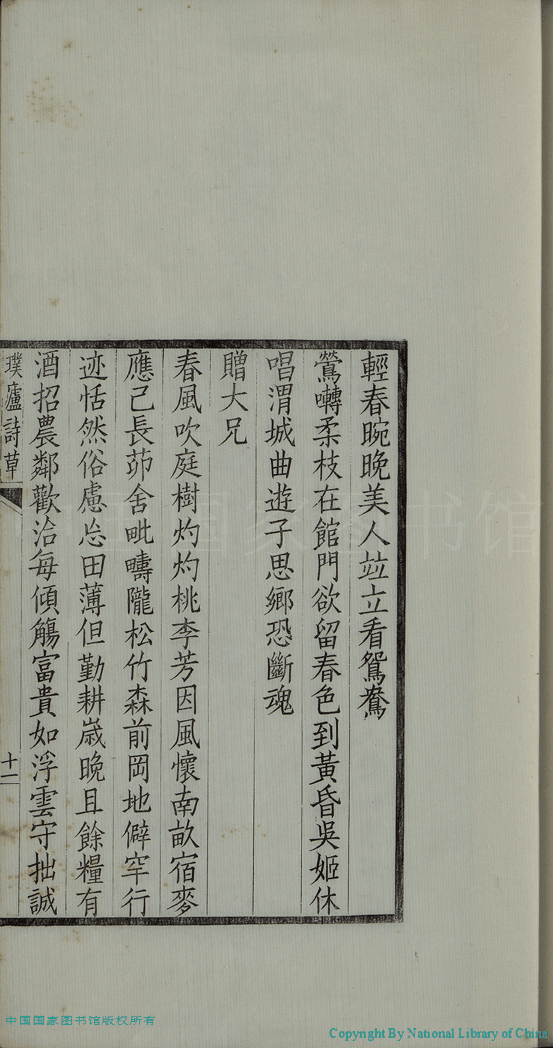 輕春晼晚美人竝立看鴛鴦
鶯囀柔枝在館門欲留春色到黃昏吳姬休
唱渭城曲遊子思鄉恐斷魂
贈大兄
春風吹庭樹灼灼桃李芳因風懷南畝宿麥
應已長茆舍毗疇隴松竹森前岡地僻罕行
迹恬然俗慮忘田薄但勤耕歲晚且餘糧有
酒招農鄰歡洽每傾觴富貴如浮雲守拙誠
璞廬詩草
十二
中国国家图书馆版权所有
Copyright By National Library of China